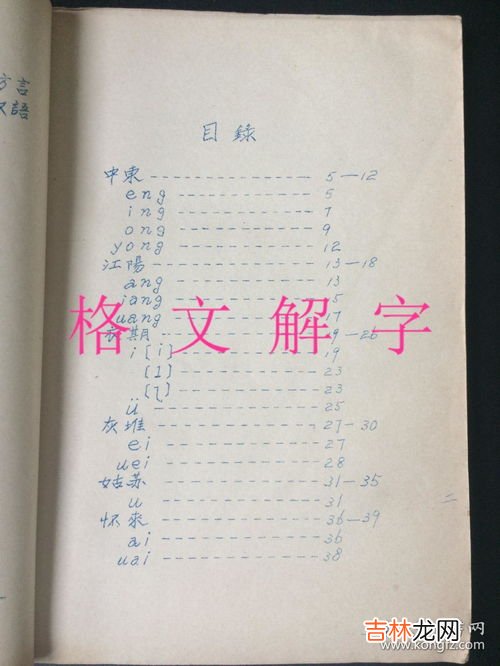 方言
汉語
目錄
中東 5—12
eng 5
ing 7
ong 9
yong 12
江陽 13—18
ang 13
iang 15
uang 17
格文解字
衣期 19—26
i [i] 19
[ɿ] 23
[ʅ] 23
ü 25
灰堆 27—30
ei 27
uei 28
姑苏 31—35
u 31
二
怀來 36—39
ai 36
uai 38
吉林龙网
www.kongfz.com